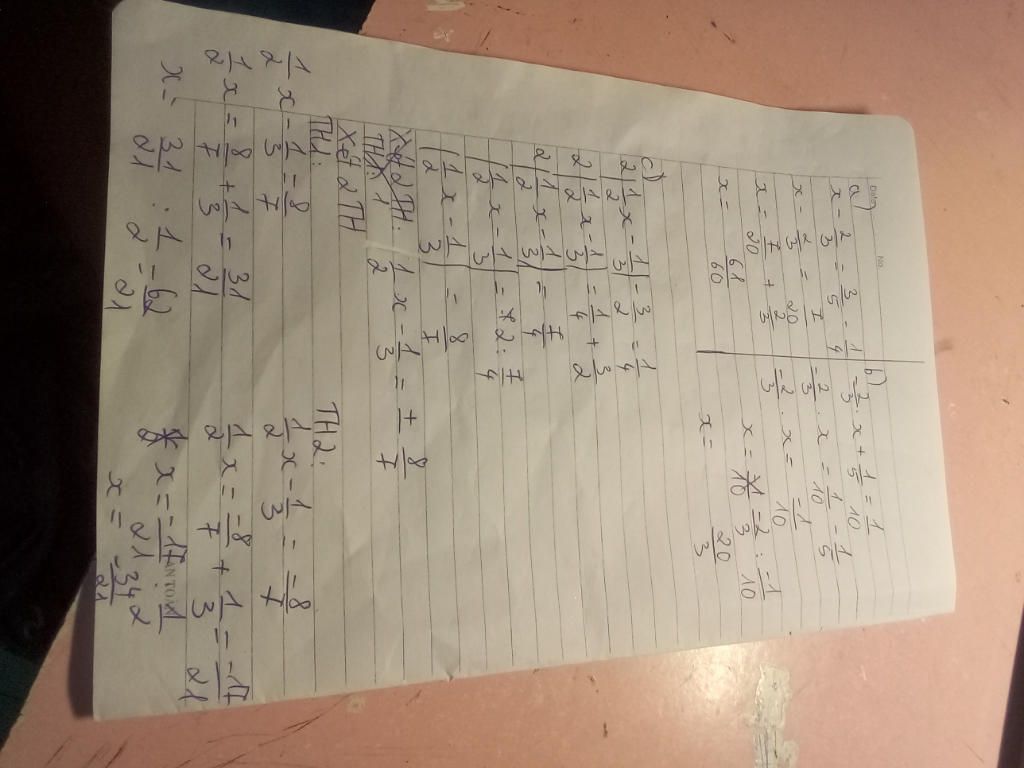 Date No
a)
x - 2/3 = 3/5 - 1/4
x - 2/3 = 7/20
x = 7/20 + 2/3
x = 61/60
b)
-2/3 . x + 1/5 = 1/10
-2/3 . x = 1/10 - 1/5
-2/3 . x = -1/10
x = -2/3 : -1/10
x = 20/3
c)
2|1/2 x - 1/3| - 3/2 = 1/4
2|1/2 x - 1/3| = 1/4 + 3/2
2|1/2 x - 1/3| = 7/4
|1/2 x - 1/3| = 2 : 7/4
|1/2 x - 1/3| = 8/7
1/2 x - 1/3 = ± 8/7
Xét 2 TH
TH1:
1/2 x - 1/3 = 8/7
1/2 x = 8/7 + 1/3 = 31/21
x = 31/21 : 1/2 = 62/21
TH2:
1/2 x - 1/3 = -8/7
1/2 x = -8/7 + 1/3 = -17/21
x = -17/21 : 1/2
x = -34/21